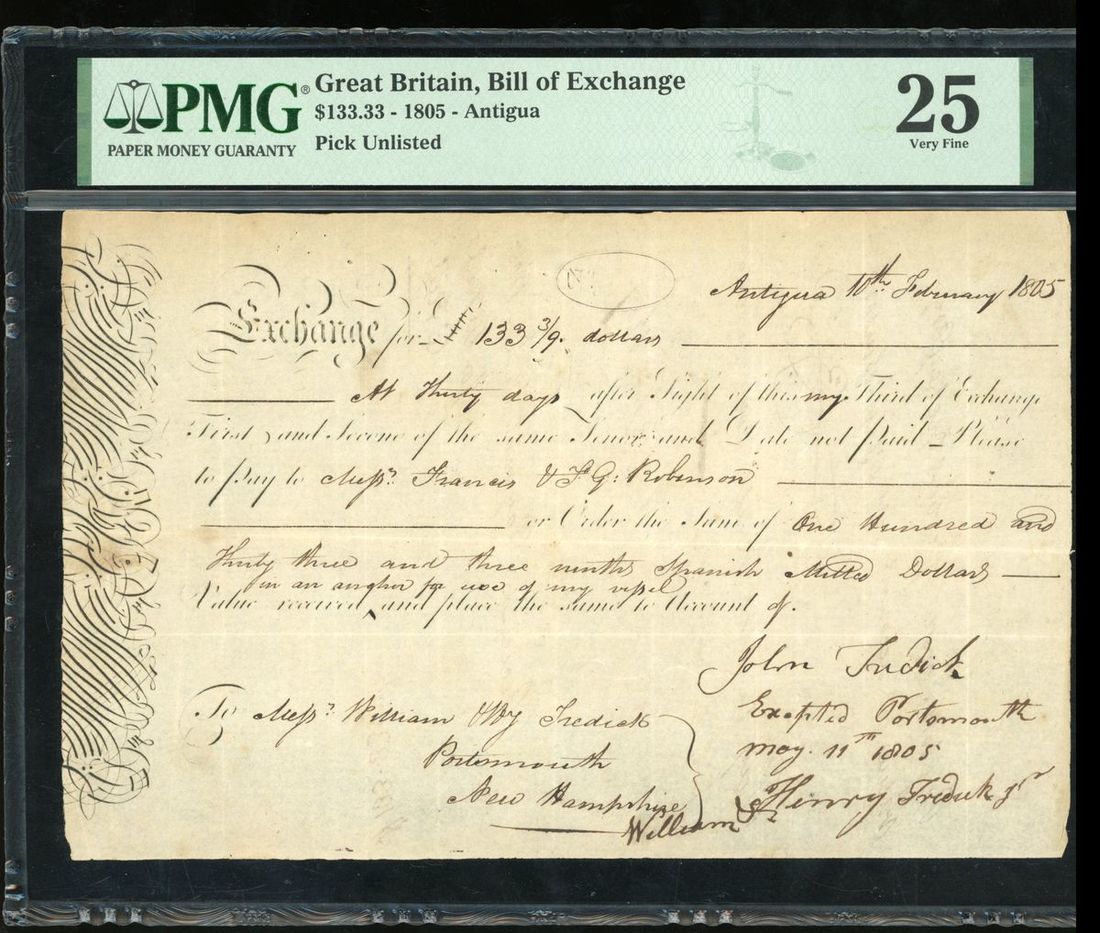 PMG®
PAPER MONEY GUARANTY
Great Britain, Bill of Exchange
$133.33 - 1805 - Antigua
Pick Unlisted
25
Very Fine
Antigua 10th February 1805
Exchange for 133 3/9. dollars
At Thirty days after Sight of this my Third of Exchange
First and Second of the same Tenor and Date not Paid Please
to Pay to Messrs. Francis & F G: Robinson
or Order the Sum of One Hundred and
Thirty three and three ninths Spanish Milled Dollars
for an anchor for use of my vessel
Value received and place the same to Account of.
John Tredick
To Messrs. William & Hy Tredick
Portsmouth
New Hampshire
Excepted Portsmouth
May. 11th 1805
William & Henry Tredick Jr